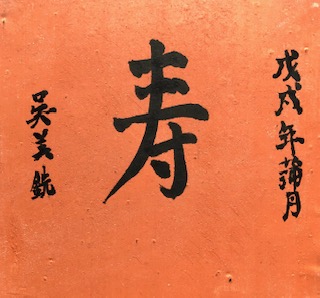 戊戌年蒲月
寿
吴美銑